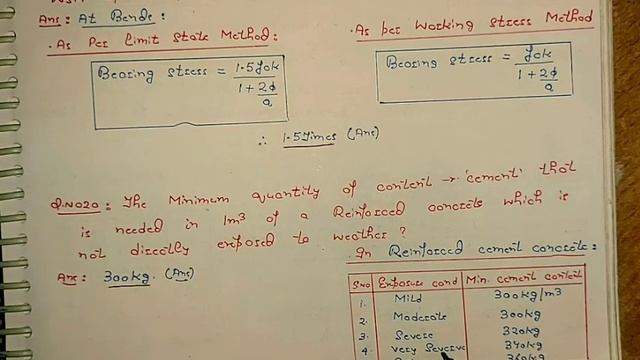 Ans: At Bends:
• As Per Limit State Method:
Bearing stress = 1.5fck / 1 + 2ϕ/a
• As per Working stress Method
Bearing stress = fck / 1 + 2ϕ/a
∴ 1.5 Times (Ans)
Q.NO20: The Minimum quantity of content → 'cement' that
is needed in 1m³ of a Reinforced concrete which is
not directly exposed to weather?
Ans: 300kg. (Ans)
In Reinforced cement concrete:
S.NO Exposure cond Min. cement content
1. Mild 300kg/m3
2. Moderate 300kg
3. Severe 320kg
4. Very Severe 340kg
360kg